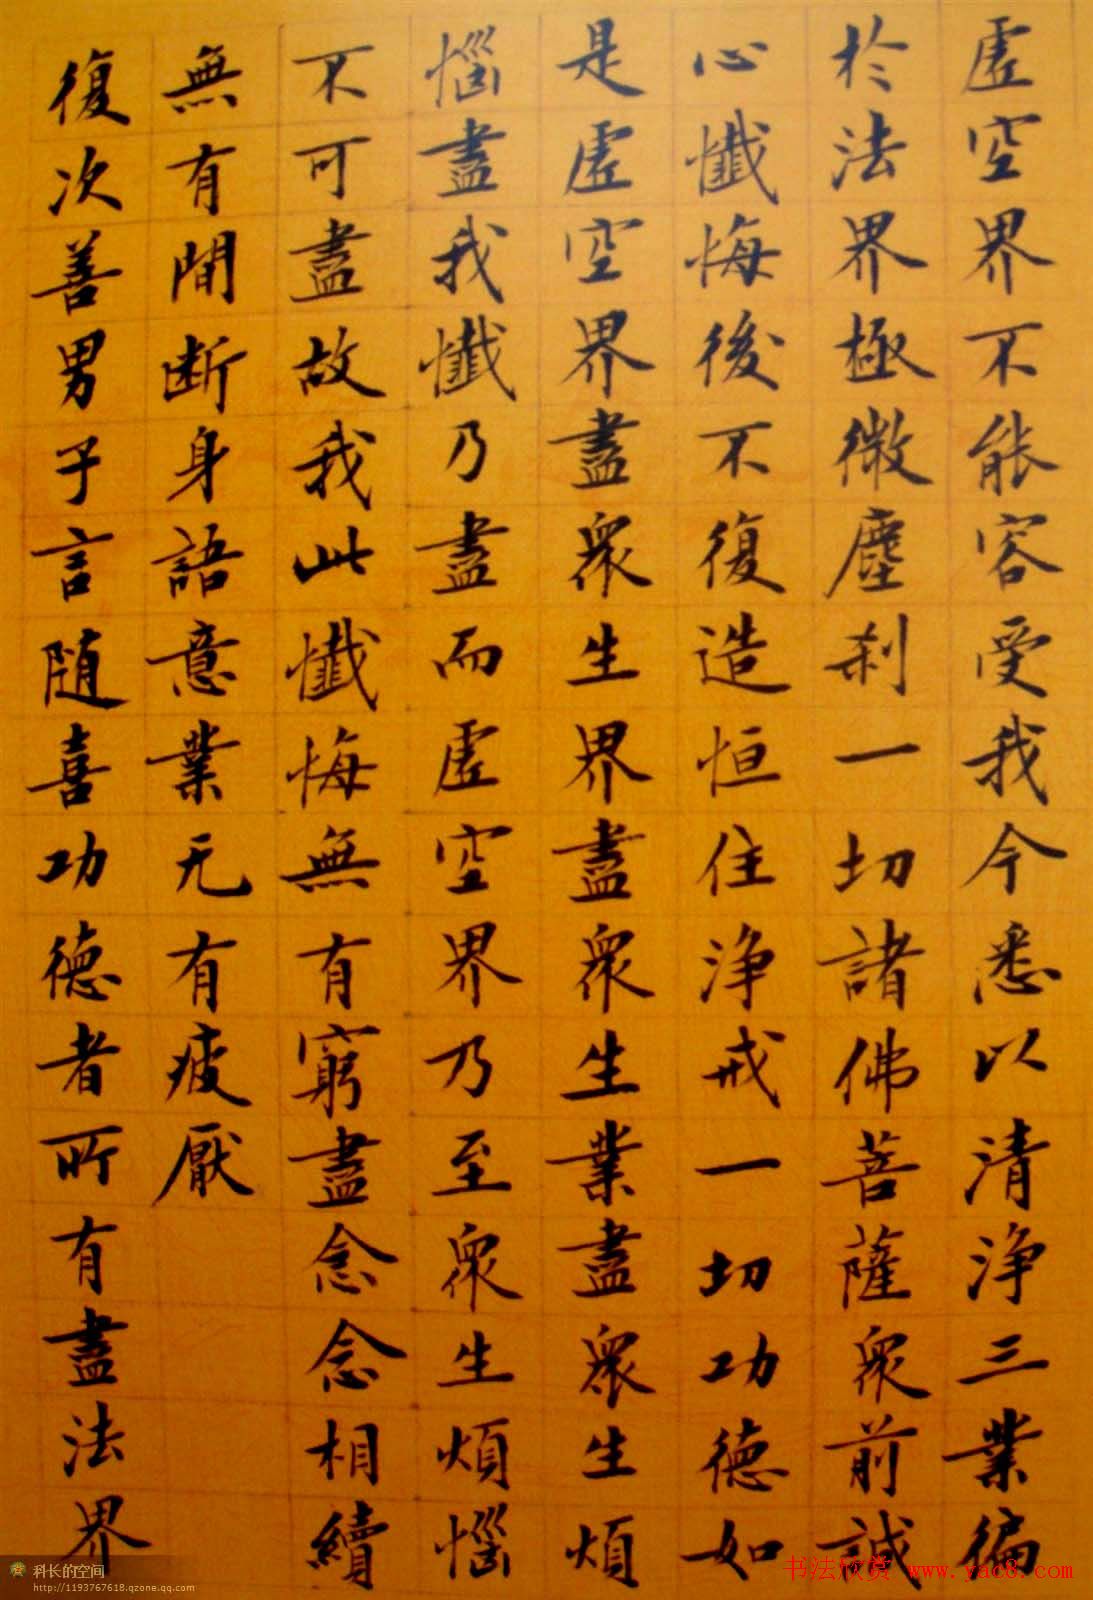 虛空界不能容受我今悉以清淨三業徧
於法界極微塵刹一切諸佛菩薩衆前誠
心懺悔後不復造恒住淨戒一切功德如
是虛空界盡衆生界盡衆生業盡衆生煩
惱盡我懺乃盡而虛空界乃至衆生煩惱
不可盡故我此懺悔無有窮盡念念相續
無有間断身語意業无有疲厭
復次善男子言随喜功德者所有盡法界
科长的空间
http://1193767618.qzone.qq.com
书法欣赏 www.yac8.com